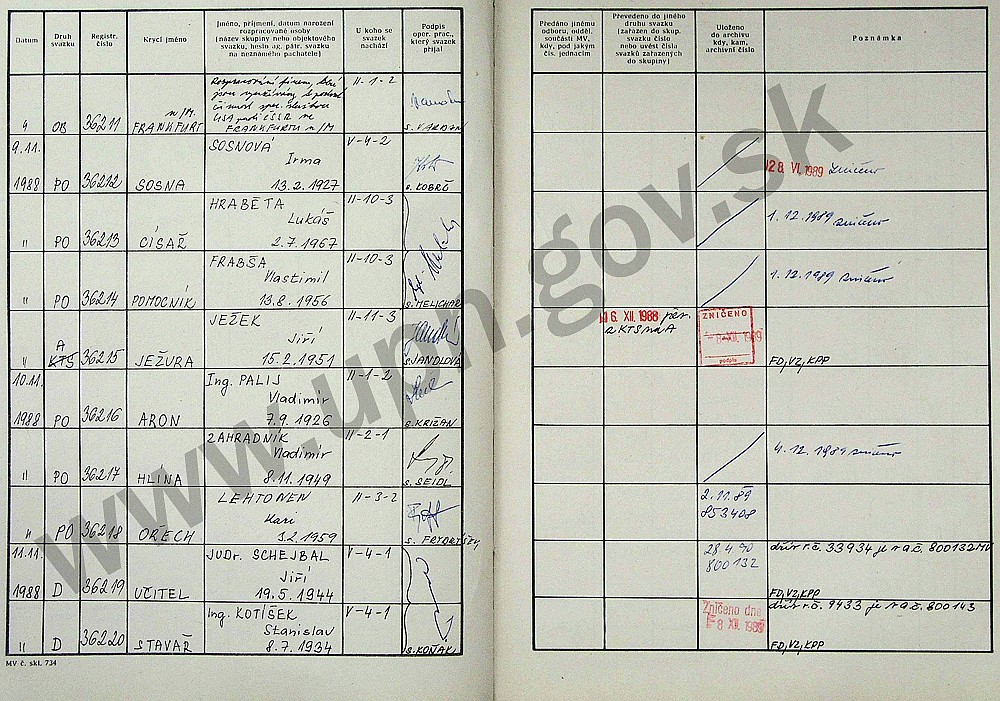 Datum
Druh svazku
Registr. číslo
Krycí jméno
Jméno, příjmení, datum narození
rozpracované osoby
(název skupiny nebo objektového
svazku, heslo ag. pátr. svazku
na neznámého pachatele)
U koho se
svazek
nachází
Podpis
oper. prac.,
který svazek
přijal
Předáno jinému
odboru, odděl.
součásti MV,
kdy, pod jakým
čís. jednacím
Převedeno do jiného
druhu svazku
(zařazen do skup.
svazku číslo
nebo uvést čísla
svazků zařazených
do skupiny)
Uloženo
do archivu
kdy, kam,
archivní číslo
Poznámka
Rozpracování firem, které
jsou využívány k
činnost spec. službou
USA proti ČSSR ve
FRANKFURTU n/M
II-1-2
n/M.
4 OB 36211 FRANKFURT
s. VARDAN
9.11. SOSNOVÁ V-4-2
Irma
1988 PO 36212 SOSNA 13.2.1927 s. KOBRČ
28. VI. 1989 zničeno
HRABĚTA II-10-3
Lukáš
" PO 36213 CÍSAŘ 2.7.1967
1.12.1989 zničeno
FRABŠA II-10-3
Vlastimil
" PO 36214 POMOCNÍK 13.8.1956 s. MELICHAR
1.12.1989 zničeno
JEŽEK II-11-3
A Jiří
" KTS 36215 JEŽURA 15.2.1951 s. JANDLOVÁ
16. XII. 1988 per.
z KTS na A
ZNIČENO
-8. XII. 1989
podpis
FD, VZ, KPP
10.11. Ing. PALIJ II-1-2
Vladimír
1988 PO 36216 ARON 7.9.1926 s. KRIŽAN
ZAHRADNÍK II-2-1
Vladimír
" PO 36217 HLINA 8.11.1949 s. SEIDL
4.12.1989 zničeno
LEHTONEN II-3-2
Kari
" PO 36218 OŘECH 3.2.1959
2.11.89
853408
11.11. JUDr. SCHEJBAL V-4-1
Jiří
1988 D 36219 UČITEL 19.5.1944
28 4 90
800132
dřív r.č. 33934 je v a.č. 800132 MV
FD, VZ, KPP
Ing. KOTÍŠEK V-4-1
Stanislav
" D 36220 STAVAŘ 8.7.1934 s. KOŇAK
Zničeno dne
8 XII. 1989
dřív r.č. 9433 je v a.č. 800143
FD, VZ, KPP
MV č. skl. 734
www.upn.gov.sk